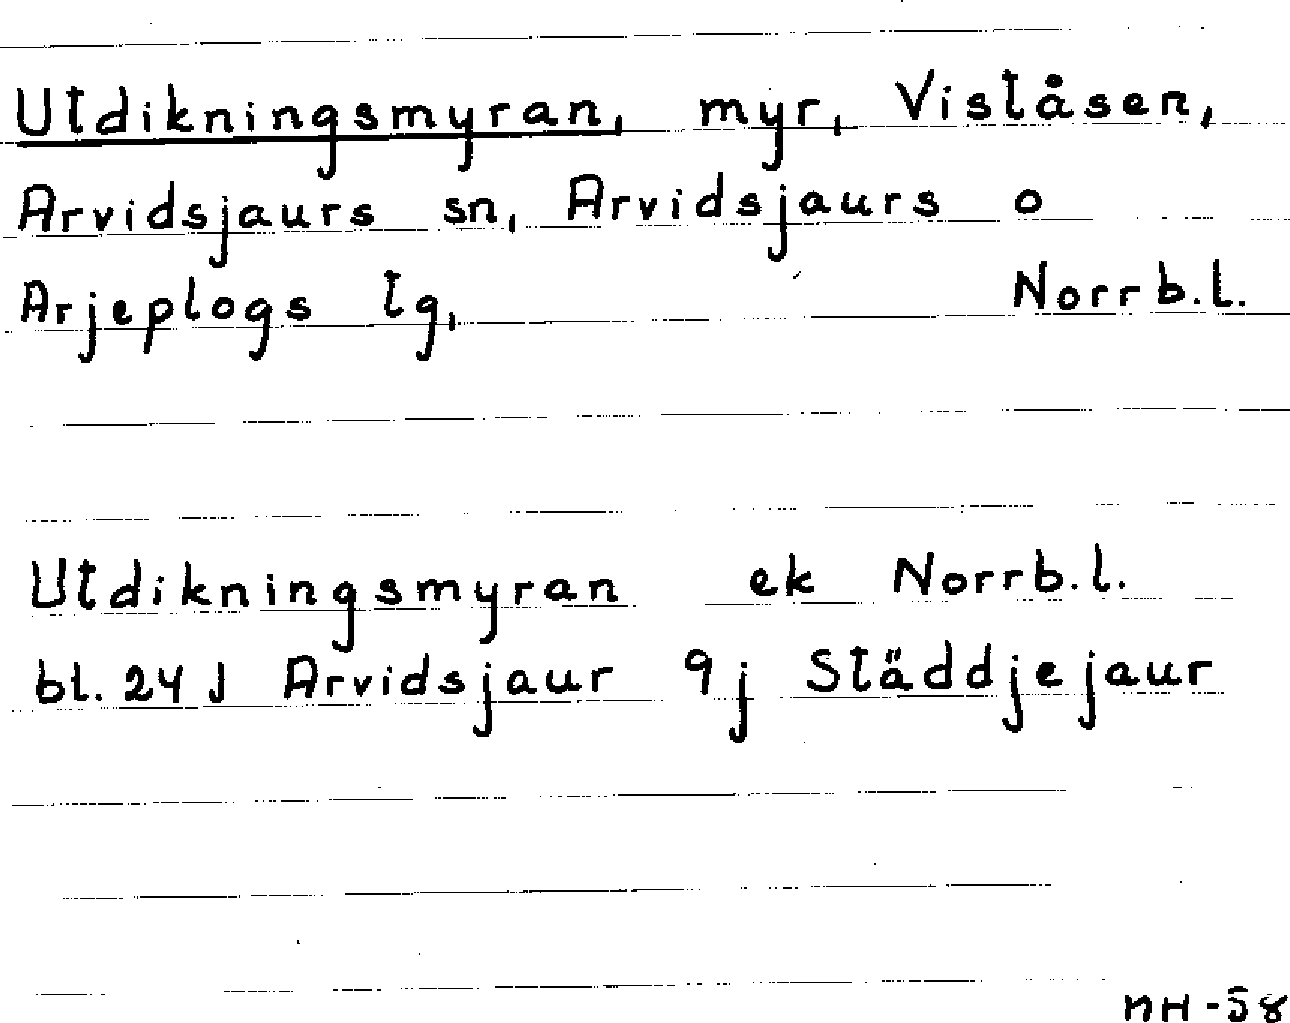 Utdikningsmyran, myr, Viståsen,
Arvidsjaurs sn, Arvidsjaurs o
Arjeplogs lg, Norrb.l.
Utdikningsmyran ek Norrb.l.
bl. 24 J Arvidsjaur 9j Städdjejaur
MH-58